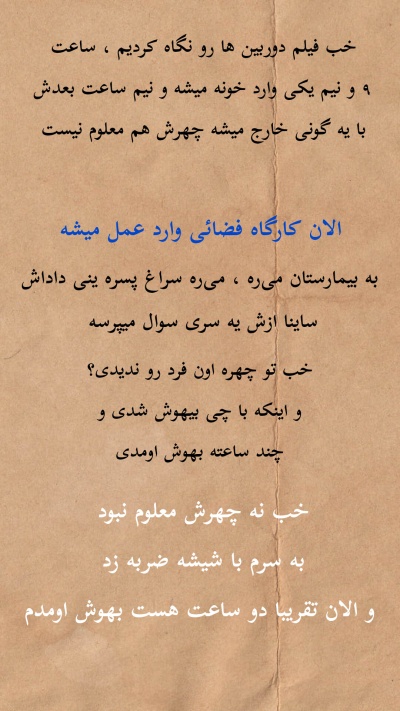 خب فیلم دوربین ها رو نگاه کردیم ، ساعت
۹ و نیم یکی وارد خونه میشه و نیم ساعت بعدش
با یه گونی خارج میشه چهرش هم معلوم نیست
الان کارگاه فضائی وارد عمل میشه
به بیمارستان می‌ره ، می‌ره سراغ پسره ینی داداش
ساینا ازش یه سری سوال میپرسه
خب تو چهره اون فرد رو ندیدی؟
و اینکه با چی بیهوش شدی و
چند ساعته بهوش اومدی
خب نه چهرش معلوم نبود
به سرم با شیشه ضربه زد
و الان تقریبا دو ساعت هست بهوش اومدم